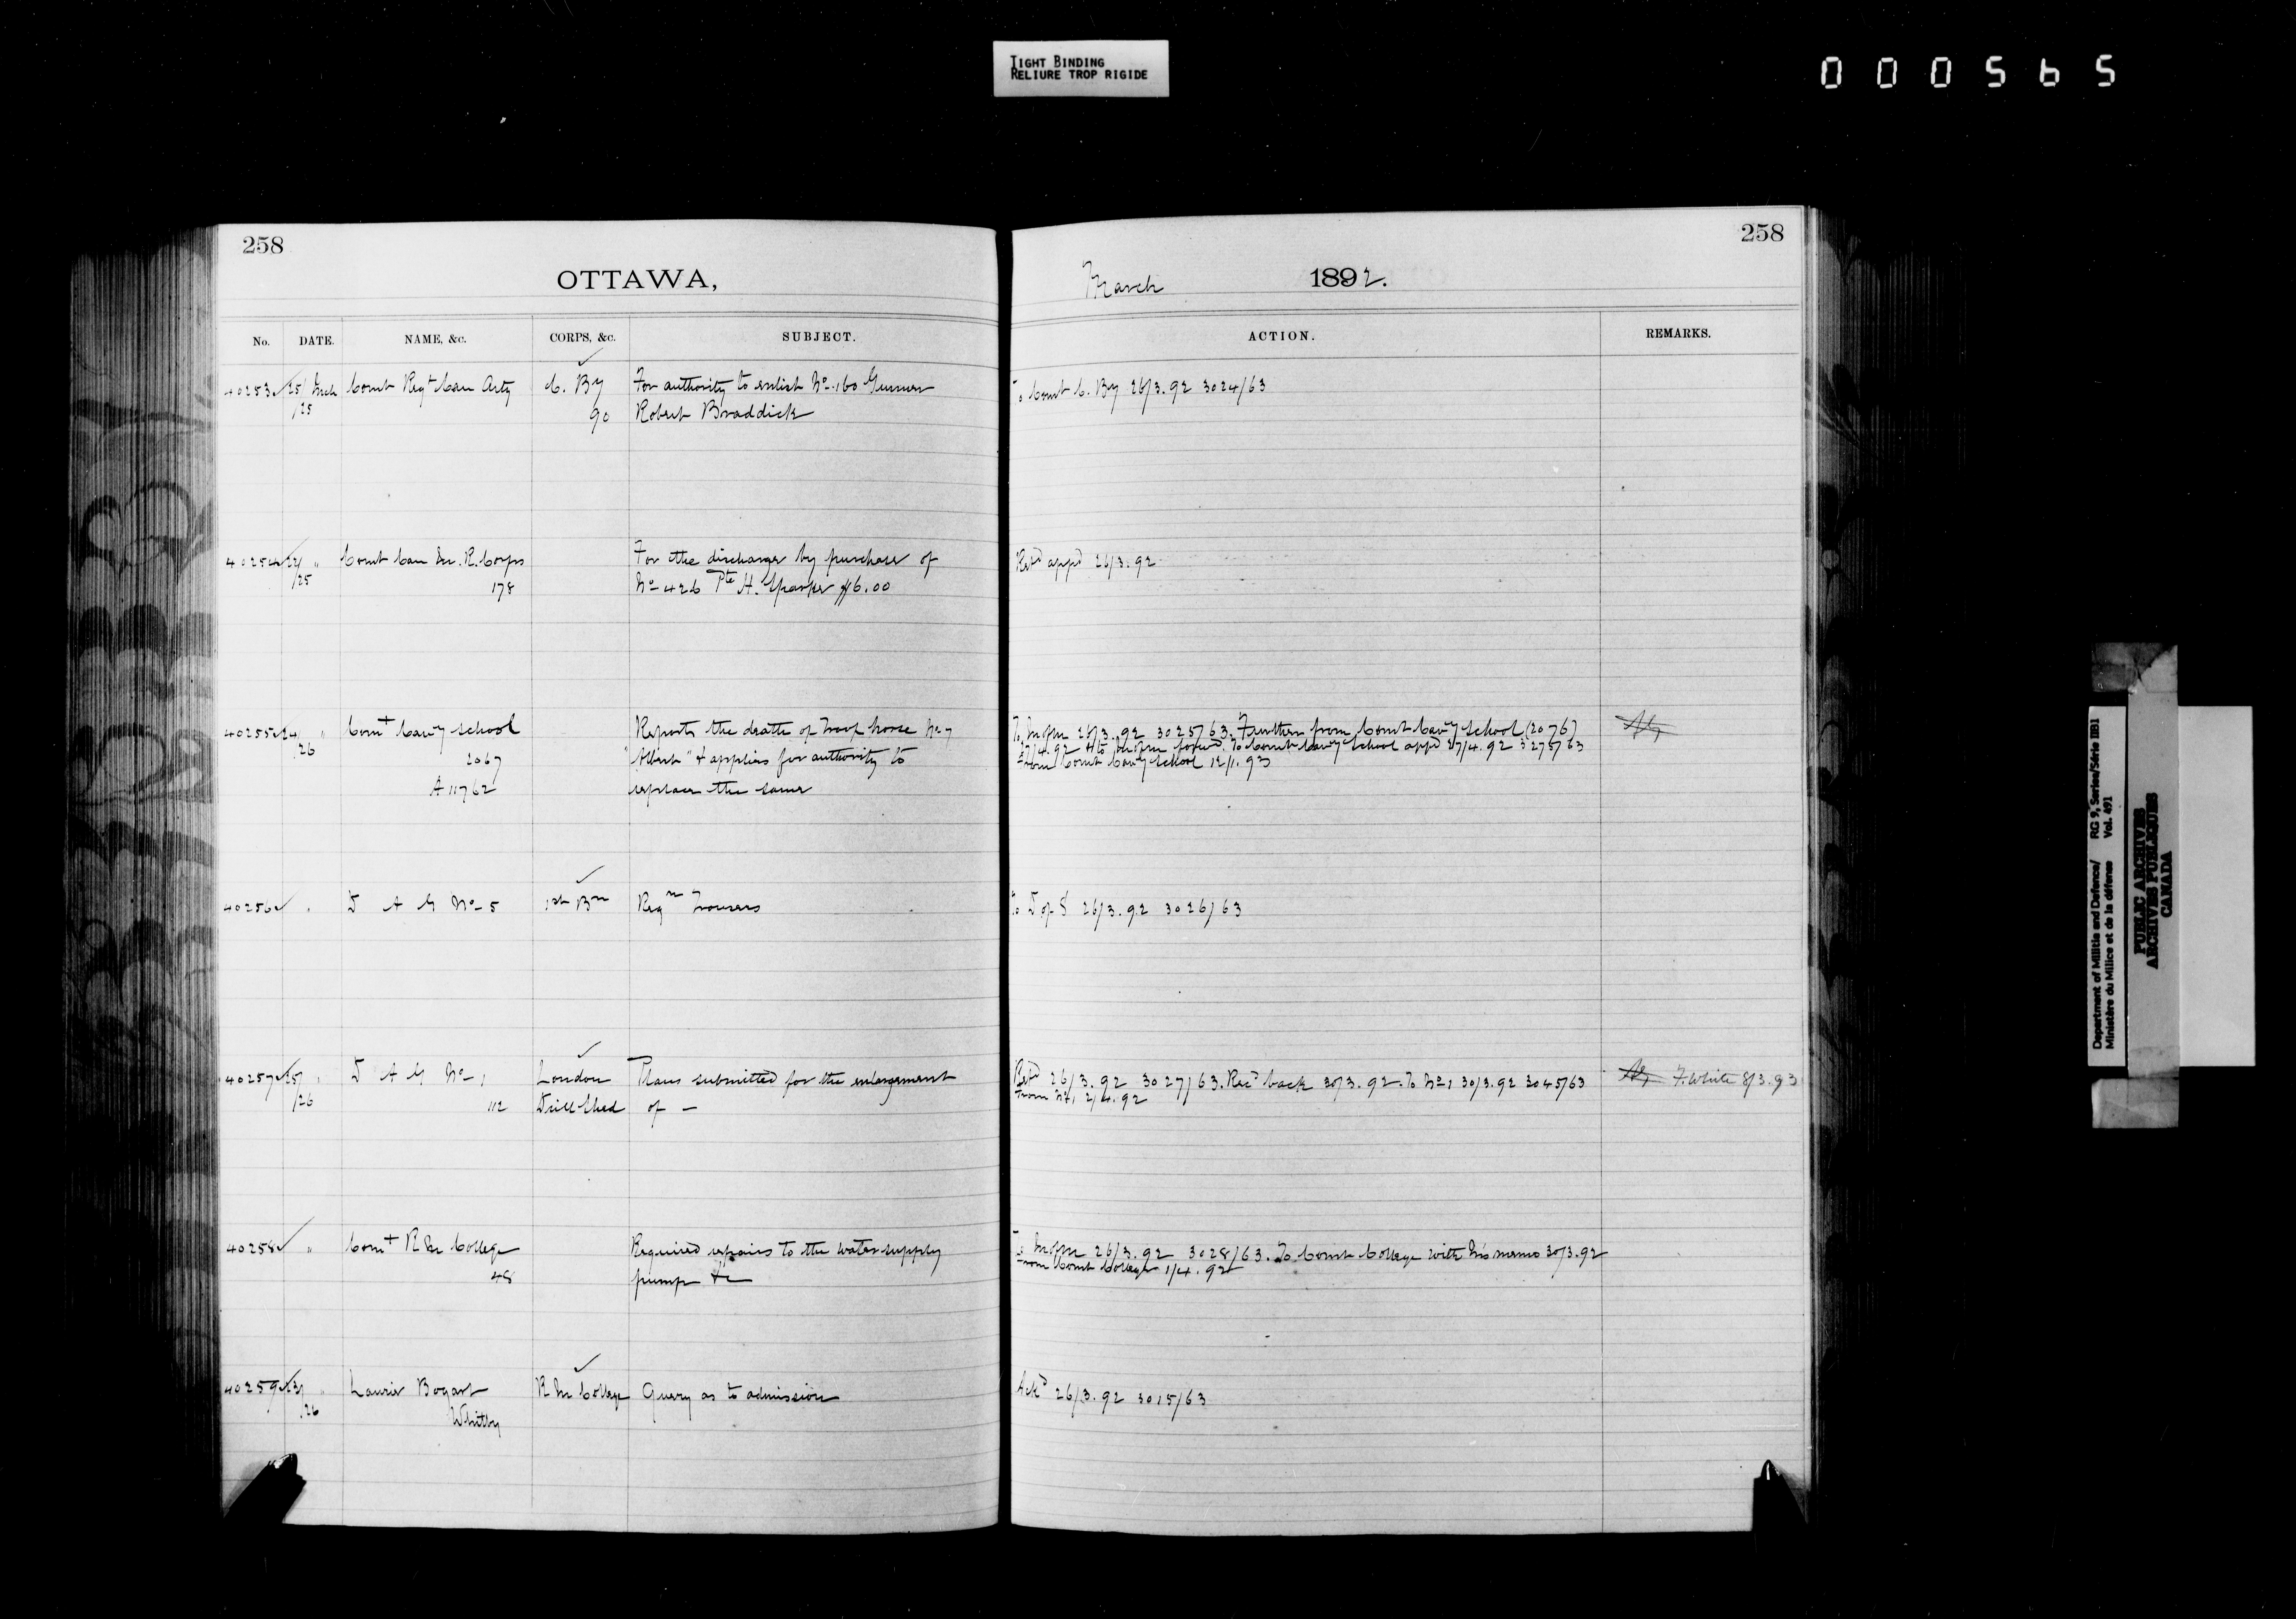 TIGHT BINDING
RELIURE TROP RIGIDE
000565
258
OTTAWA,
No. DATE. NAME, &c. CORPS, &c. SUBJECT.
40253 25/ Mch Comt Regt Can Arty C. By For authority to enlist No. 160 Gunner
/25 90 Robert Braddick
40254 24/ " Comt Can Mtd. R. Corps For the discharge by purchase of
/25 178 No 426 Pte H. $6.00
40255 24/ " Comt Cavy School Reports the death of troop horse No 7
/26 2067 "Albert" & applies for authority to
A 11762 replace the same
40256 " D A G No 5 1st Bn Reqn Trousers
40257 25/ " D A G No 1 London Plans submitted for the enlargement
/26 112 Drill Shed of —
40258 " Comt R M College Required repairs to the water supply
48 pump &c
40259 23/ " Laurier Bogart R M College Query as to admission
/26 Whitby
258
March 1892.
ACTION. REMARKS.
To Comt C. By 26/3.92 3024/63
Retd appd 26/3.92
To 26/3.92 3025/63. Further from Comt Cavy School (2076)
27/4.92 forwd. To Comt Cavy School appd 27/4.92 3275/63
From Comt Cavy School 12/1.93
To D of S 26/3.92 3026/63
26/3.92 3027/63. Recd back 30/3.92. To No 1 30/3.92 3045/63 F. White 8/3.93
From No 1 2/4.92
To 26/3.92 3028/63. To Comt College with his memo 30/3.92
From Comt College 1/4.92
Ackd 26/3.92 3015/63
Department of Militia and Defence/ RG 9, Series/Série IIB1
Ministère du Milice et de la défense Vol. 491
PUBLIC ARCHIVES
ARCHIVES PUBLIQUES
CANADA